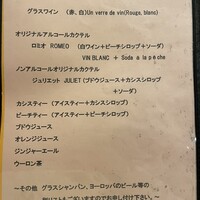 グラスワイン (赤、白)Un verre de vin(Rouge, blanc)
オリジナルアルコールカクテル
ロミオ ROMEO (白ワイン+ピーチシロップ+ソーダ)
VIN BLANC + Soda a la pêche
ノンアルコールオリジナルカクテル
ジュリエット JULIET (ブドウジュース+カシスシロップ
+ソーダ)
カシスティー (アイスティー+カシスシロップ)
ピーチティー (アイスティー+ピーチシロップ)
ブドウジュース
オレンジジュース
ジンジャーエール
ウーロン茶
~その他 グラスシャンパン、ヨーロッパのビール等の
リストもございますのでお申し付け下さい。~